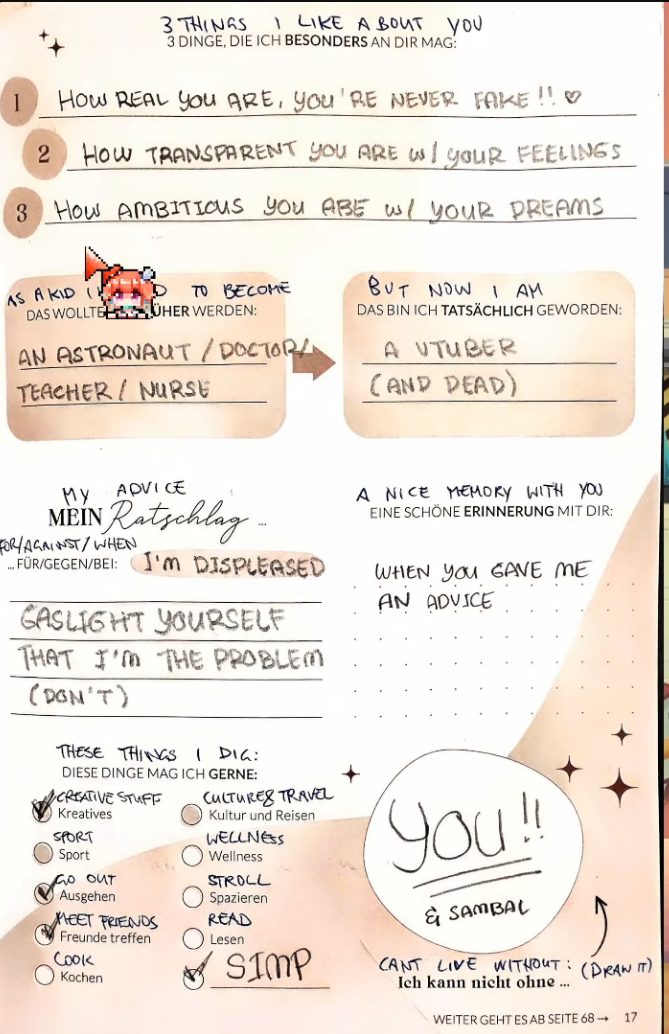 3 THINGS I LIKE ABOUT YOU
3 DINGE, DIE ICH BESONDERS AN DIR MAG:
1 HOW REAL YOU ARE, YOU'RE NEVER FAKE!! ♡
2 HOW TRANSPARENT YOU ARE W/ YOUR FEELINGS
3 HOW AMBITIOUS YOU ARE W/ YOUR DREAMS
AS A KID I TO BECOME
DAS WOLLTE WERDEN:
AN ASTRONAUT / DOCTOR/
TEACHER / NURSE
BUT NOW I AM
DAS BIN ICH TATSÄCHLICH GEWORDEN:
A VTUBER
(AND DEAD)
MY ADVICE
MEIN Ratschlag ...
FOR/AGAINST/WHEN
... FÜR/GEGEN/BEI: I'M DISPLEASED
GASLIGHT YOURSELF
THAT I'M THE PROBLEM
(DON'T)
A NICE MEMORY WITH YOU
EINE SCHÖNE ERINNERUNG MIT DIR:
WHEN YOU GAVE ME
AN ADVICE
THESE THINGS I DIG:
DIESE DINGE MAG ICH GERNE:
CREATIVE STUFF
Kreatives
SPORT
Sport
GO OUT
Ausgehen
MEET FRIENDS
Freunde treffen
COOK
Kochen
CULTURE & TRAVEL
Kultur und Reisen
WELLNESS
Wellness
STROLL
Spazieren
READ
Lesen
SIMP
YOU!!
& SAMBAL
CANT LIVE WITHOUT: (DRAW IT)
Ich kann nicht ohne ...
WEITER GEHT ES AB SEITE 68 → 17